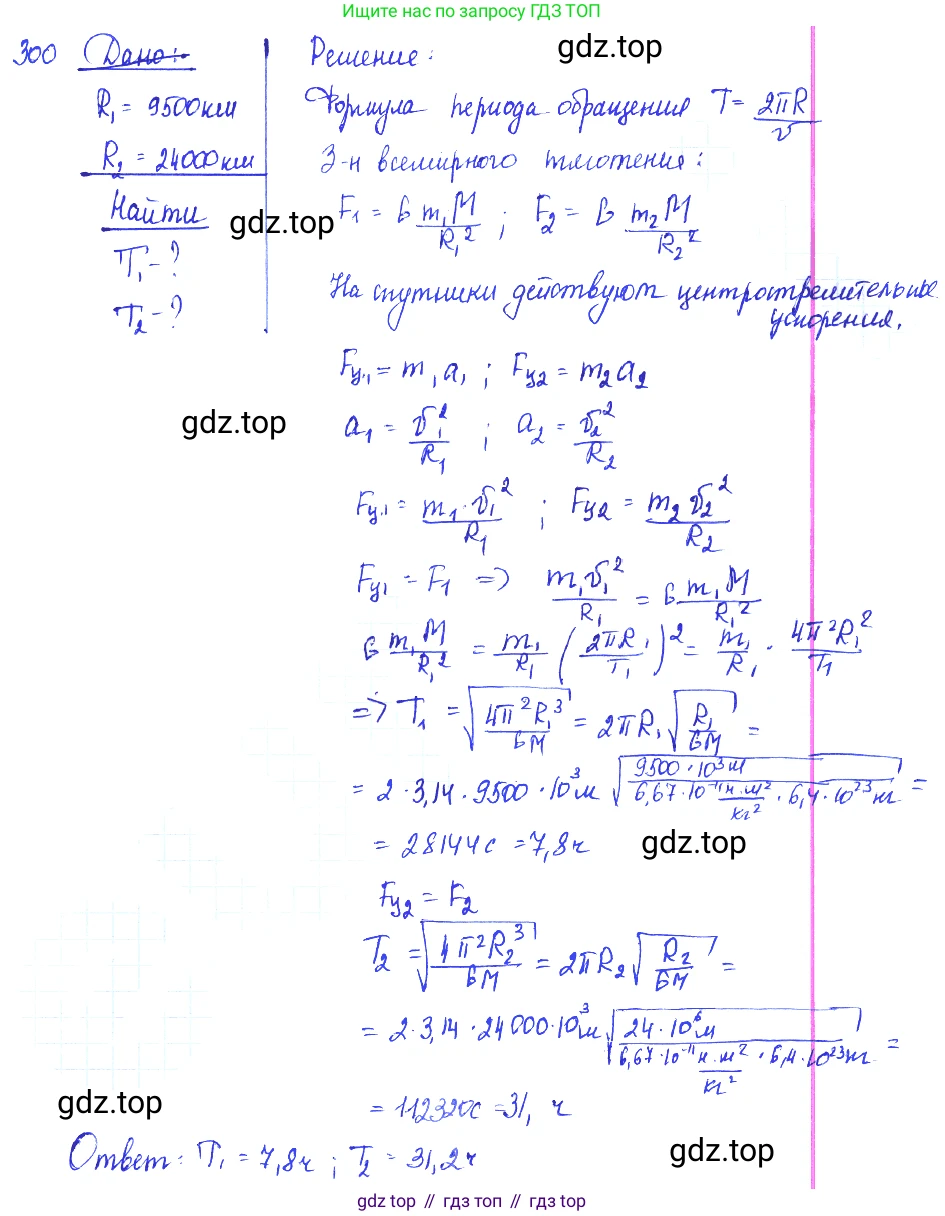 Ищите нас по запросу ГДЗ ТОП
300 Дано:
R₁ = 9500км
R₂ = 24000км
Найти
T₁ - ?
T₂ - ?
Решение:
gdz.top
Формула периода обращения T = 2πR/v
З-н всемирного тяготения:
gdz.top
F₁ = G m₁M/R₁² ; F₂ = G m₂M/R₂²
На спутники действуют центростремительные
ускорения.
Fц₁ = m₁a₁ ; Fц₂ = m₂a₂
gdz.top
a₁ = v₁²/R₁ ; a₂ = v₂²/R₂
Fц₁ = m₁·v₁²/R₁ ; Fц₂ = m₂v₂²/R₂
Fц₁ = F₁ => m₁v₁²/R₁ = G m₁M/R₁²
G m₁M/R₁² = m₁/R₁ (2πR₁/T₁)² = m₁/R₁ · 4π²R₁²/T₁
=> T₁ = √(4π²R₁³/GM) = 2πR₁√(R₁/GM) =
= 2·3,14·9500·10³м √(9500·10³м/(6,67·10⁻¹¹ н·м²/кг² · 6,4·10²³кг)) =
= 28144с = 7,8ч
gdz.top
Fц₂ = F₂
T₂ = √(4π²R₂³/GM) = 2πR₂√(R₂/GM) =
= 2·3,14·24000·10³м √(24·10⁶м/(6,67·10⁻¹¹ н·м²/кг² · 6,4·10²³кг)) =
gdz.top
= 112320с = 31, ч
Ответ: T₁ = 7,8ч ; T₂ = 31,2ч
gdz.top
gdz.top // гдз топ // гдз top